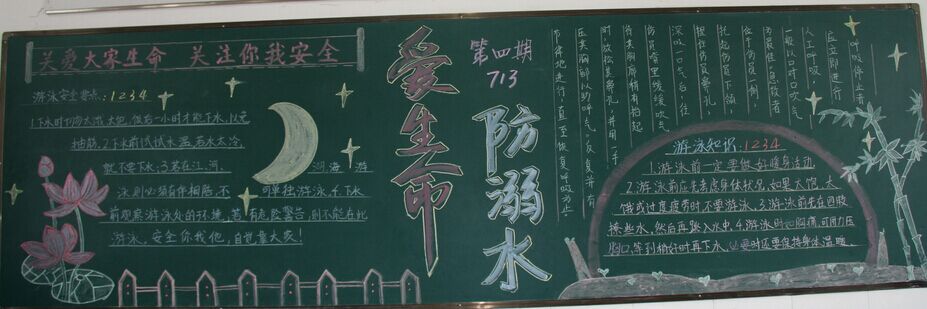 关爱大家生命 关注你我安全
游泳安全要点:1234
1.下水时切勿太饿、太饱,饭后一小时才能下水,以免
抽筋.2.下水前试试水温,若水太冷,
就不要下水;3.若在江、河、湖海游
泳则必须有伴相陪,不可单独游泳.4.下水
前观察游泳处的环境,若有危险警告,则不能在此
游泳,安全你我他,自觉靠大家!
爱生命
第四期
713
防溺水
呼吸停止者
应立即进行
人工呼吸,
一般以口对口吹气
为最佳急救者
位于伤员一侧,
托起伤员下颌
捏住伤员鼻孔,
深吸一口气后,往
伤员嘴里缓缓吹气
待其胸廓稍有抬起
时,放松其鼻孔,并用一手
压其胸部以助呼气,反复并有
节律地进行,直至恢复呼吸为止
游泳知识:1234
1.游泳前一定要做好暖身活动
2.游泳前应先考虑身体状况,如果太饱、太
饿或过度疲劳时不要游泳.3.游泳前先在四肢
撩些水,然后再跳入水中.4.游泳时如胸痛,可用力压
胸口,等到稍好时再下水,必要时还要保持身体温暖